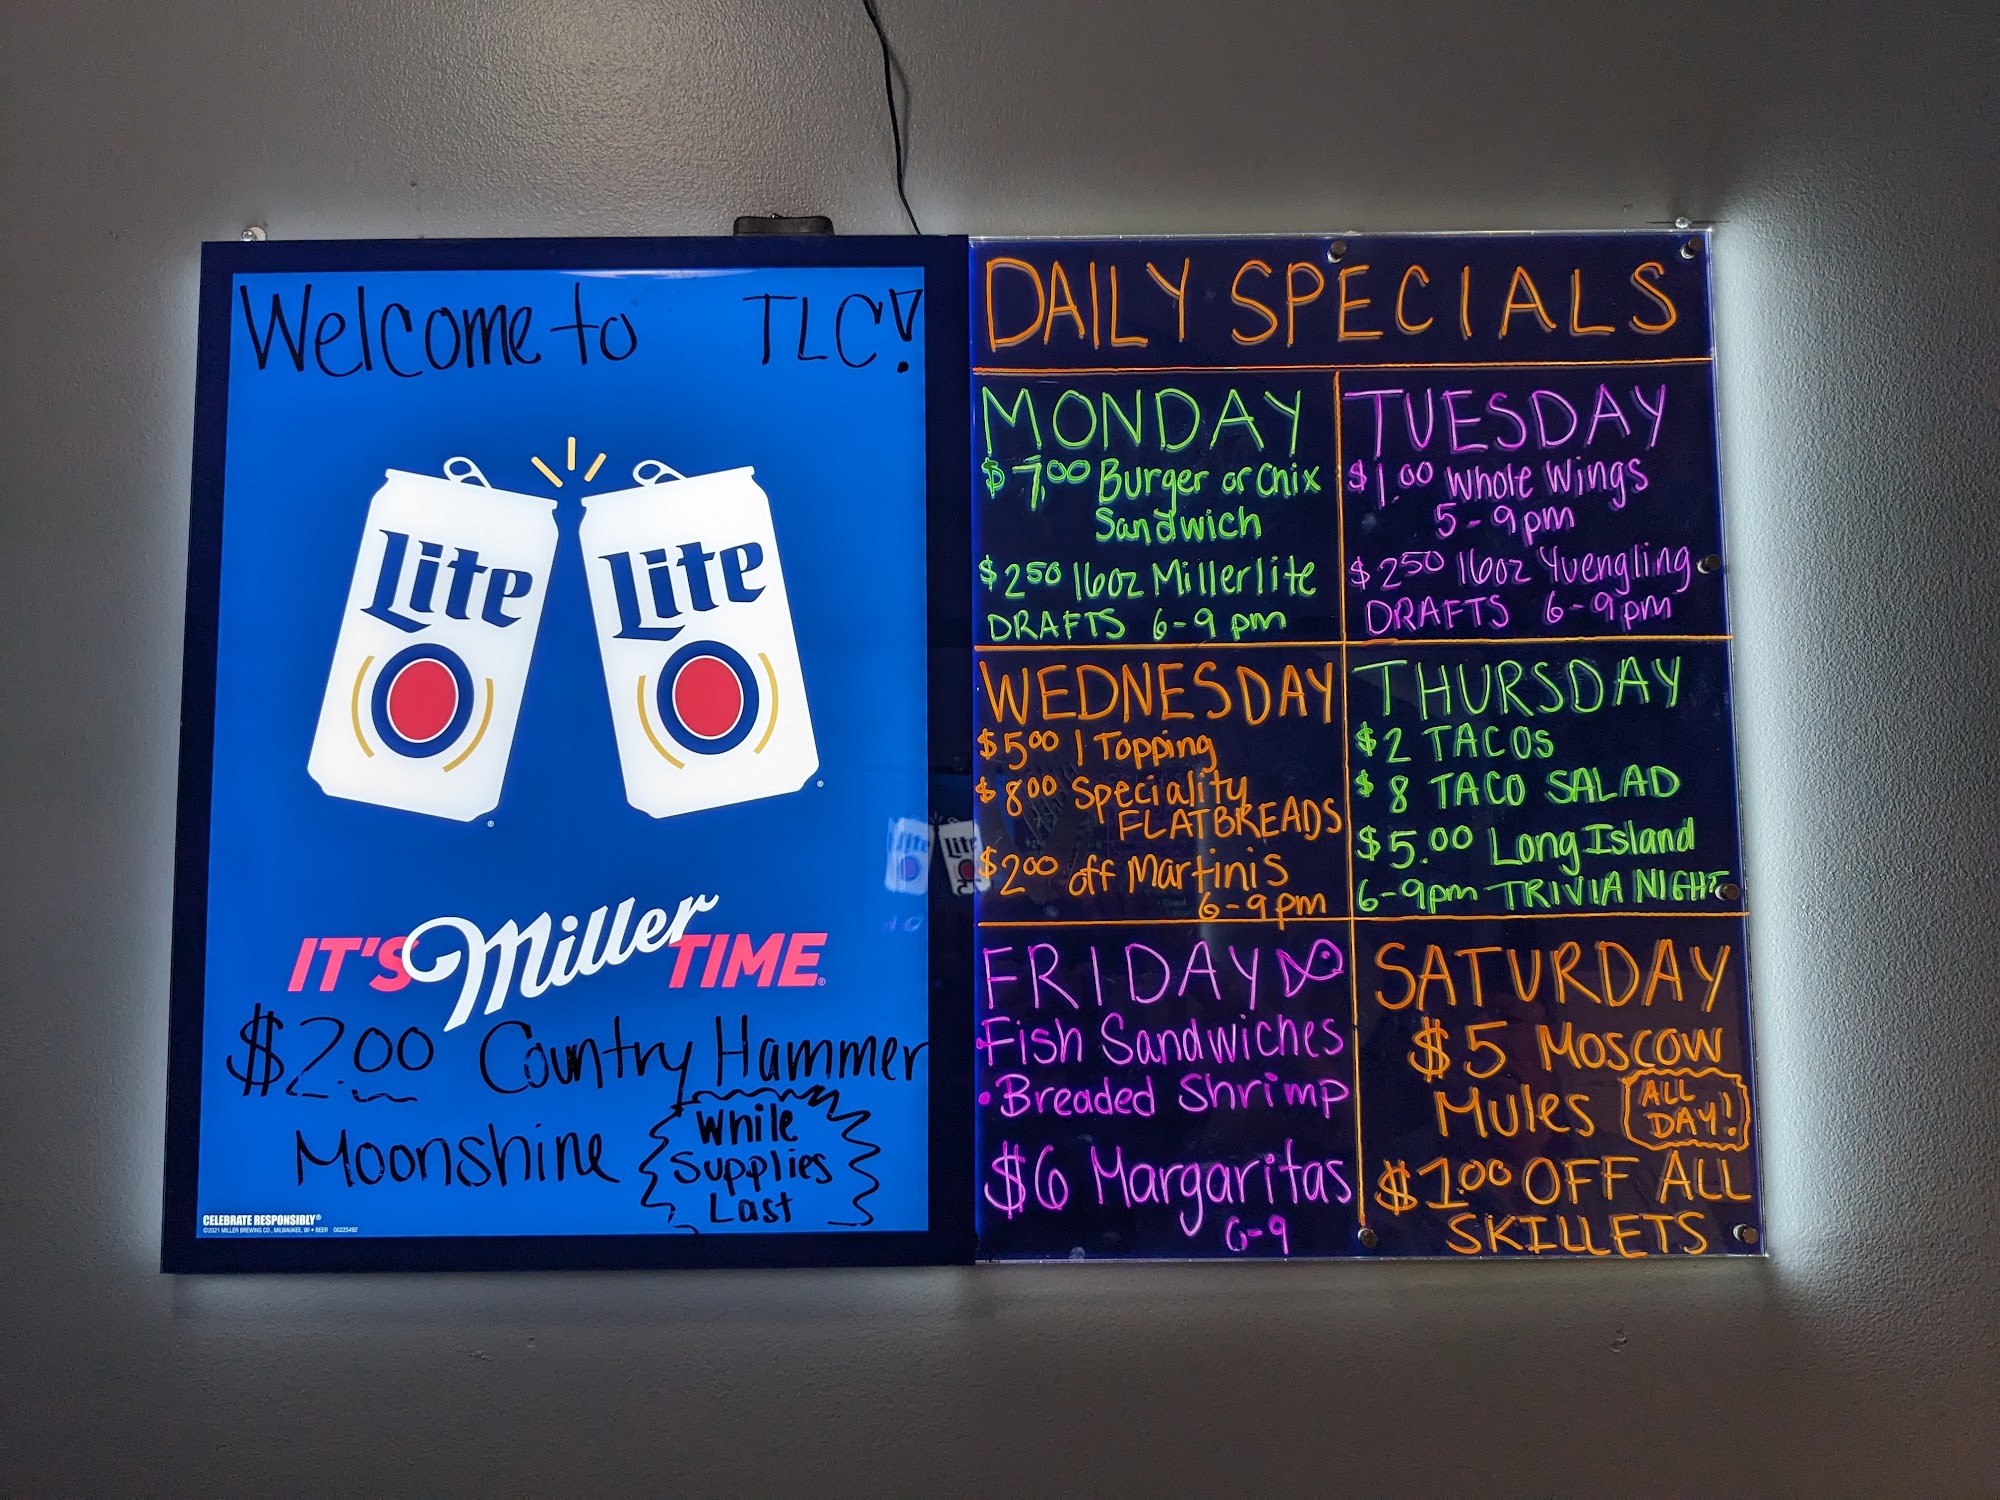 Welcome to TLC!
Lite
Lite
IT'S Miller TIME
$2.00 Country Hammer
Moonshine
While
Supplies
Last
CELEBRATE RESPONSIBLY®
©2021 MILLER BREWING CO., MILWAUKEE, WI • BEER 00225492
DAILY SPECIALS
MONDAY
$7.00 Burger or Chix
Sandwich
$2.50 16oz Miller lite
DRAFTS 6-9 pm
TUESDAY
$1.00 Whole Wings
5-9pm
$2.50 16oz Yuengling
DRAFTS 6-9pm
WEDNESDAY
$5.00 1 Topping
$8.00 Speciality
FLATBREADS
$2.00 off Martinis
6-9pm
THURSDAY
$2 TACOS
$8 TACO SALAD
$5.00 Long Island
6-9pm TRIVIA NIGHT
FRIDAY
Fish Sandwiches
• Breaded Shrimp
$6 Margaritas
6-9
SATURDAY
$5 MOSCOW
MULES
ALL
DAY!
$1.00 OFF ALL
SKILLETS